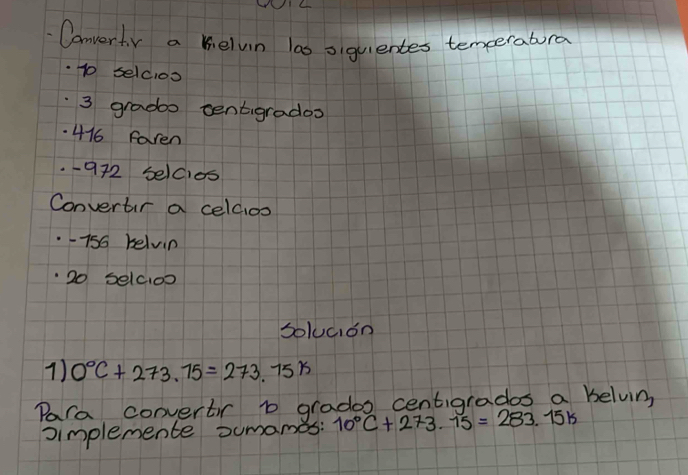 - Convertir a kelvin las siguientes temperatura
· 10 selcios
· 3 grados centigrados
· 416 Faren
· -972 selcios
Convertir a celcios
· -156 kelvin
· 20 selcios
Solución
1) 0°C + 273.15 = 273.15 K
Para convertir 10 grados centigrados a kelvin,
simplemente sumamos: 10°C + 273.15 = 283.15K